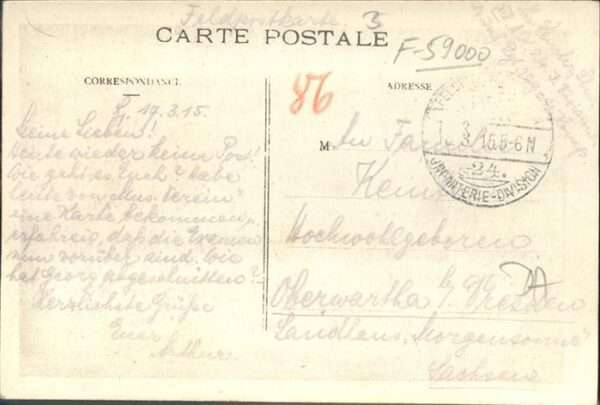 Feldpostkarte
3
CARTE POSTALE
F-59000
CORRESPONDANCE
ADRESSE
86
17.3.15.
Meine Lieben!
Heute wieder keine Post!
Wie geht es Euch? Habe
heute vom Mus. Verein
eine Karte bekommen u.
erfahren, daß die Examen
nun vorüber sind. Wie
hat Georg abgeschnitten?
Herzlichste Grüße
Euer
Arthur
M
An Familie
Hochwohlgeboren
Oberwartha b/ Dresden
Landhaus „Morgensonne"
Sachsen
3.15.5-6N
24.
INFANTERIE-DIVISION